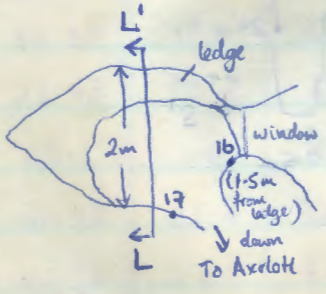 L'
ledge
window
2m
16
(1.5m
from
ledge)
17
L
down
To Axolotl